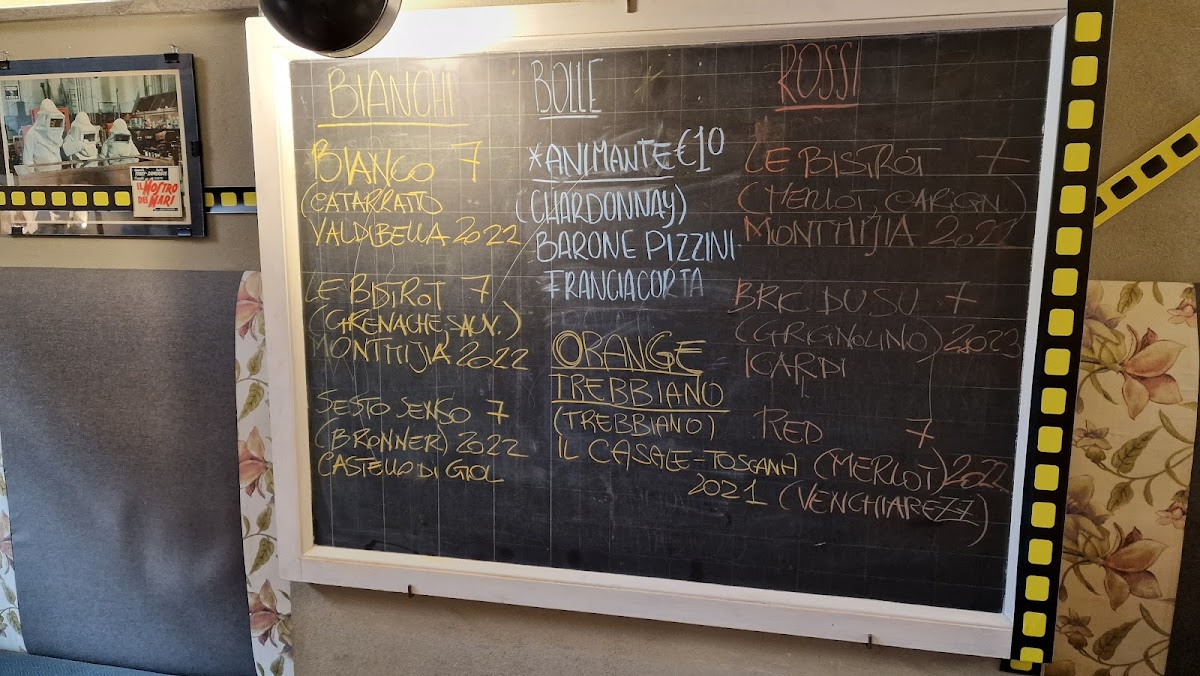 BIANCHI
BIANCO 7
(CATARRATTO
VALDIBELLA 2022
LE BISTROT 7
(GRENACHE, SAUV.)
MONTMIJIA 2022
SESTO SENSO 7
(BRONNER) 2022
CASTELLO DI GIOL
BOLLE
*ANIMANTE €10
(CHARDONNAY)
BARONE PIZZINI
FRANCIACORTA
ORANGE
TREBBIANO
(TREBBIANO)
IL CASALE - TOSCANA
2021
ROSSI
LE BISTROT 7
(MERLOT, CARIGN.)
MONTMIJIA 2022
BRIC DU SU 7
(GRIGNOLINO) 2023
ICARDI
RED 7
(MERLOT) 2022
(VENCHIAREZZ)
IL MOSTRO
DEI MARI